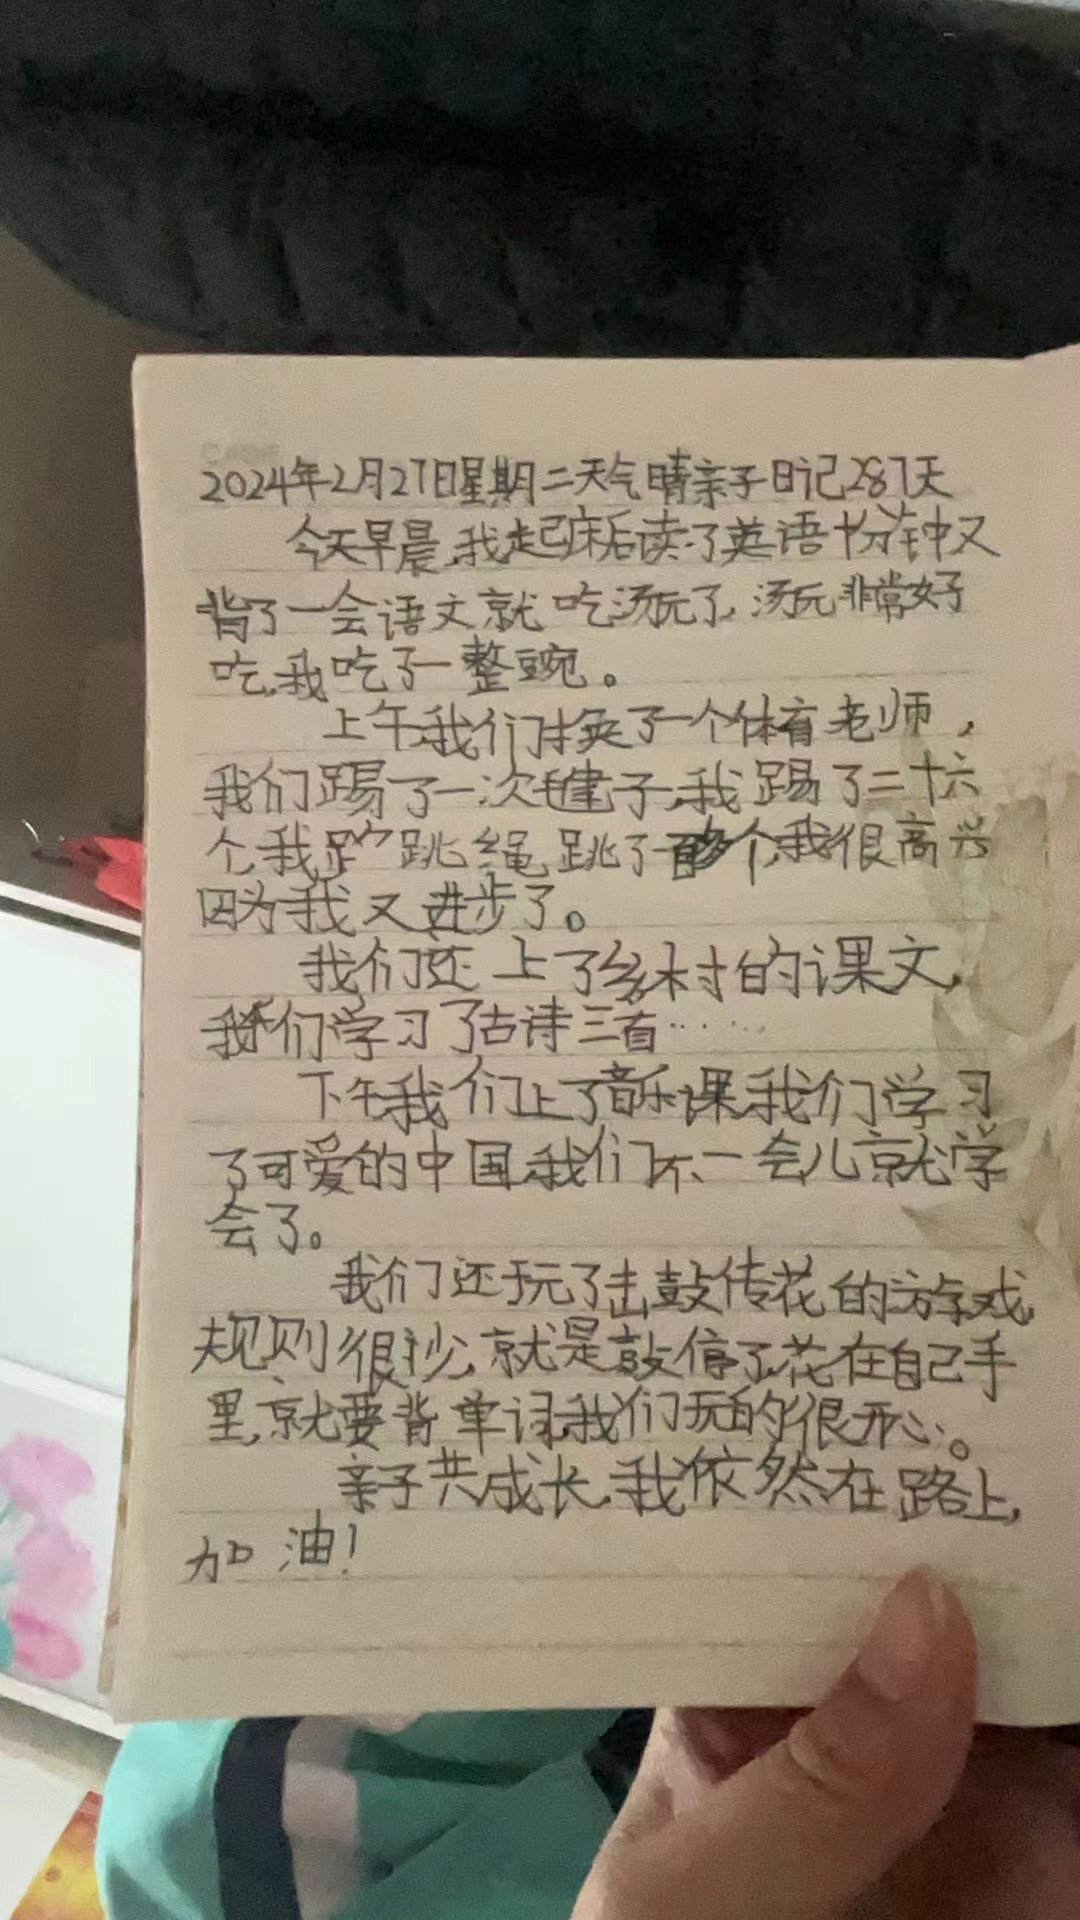 2024年2月27日星期二天气晴亲子日记287天
今天早晨,我起床后读了英语十分钟又
背了一会语文就吃汤玩了,汤玩非常好
吃,我吃了一整豌。
上午,我们换了一个体育老师,
我们踢了一次毽子,我踢了二十六
个,我跳绳跳了个,我很高兴
因为我又进步了。
我们还上了乡村的课文,
我们学习了古诗三首……
下午我们上了音乐课,我们学习
了可爱的中国,我们不一会儿就学
会了。
我们还玩了击鼓传花的游戏,
规则很抄,就是鼓停了,花在自己手
里,就要背单词,我们玩的很开心。
亲子共成长,我依然在路上,
加油!